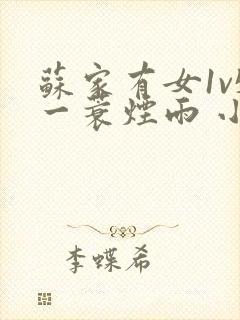 蘇家有女1v
一蓑煙雨 小
李蝶希